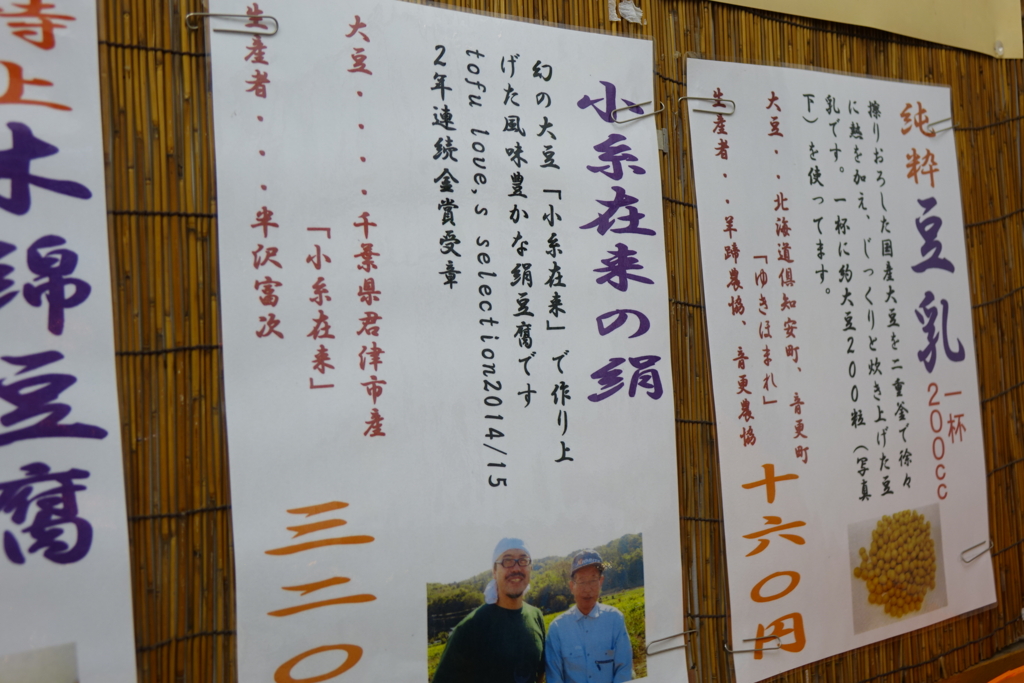 純粋豆乳 一杯200cc
擦りおろした国産大豆を二重釜で徐々
に熱を加え、じっくりと炊き上げた豆
乳です。一杯に約大豆200粒(写真
下)を使ってます。
大豆・・北海道倶知安町、音更町
「ゆきほまれ」
生産者・・羊蹄農協、音更農協
十六〇円
小糸在来の絹
幻の大豆「小糸在来」で作り上
げた風味豊かな絹豆腐です
tofu love,s selection2014/15
2年連続金賞受章
大豆・・・・千葉県君津市産
「小糸在来」
生産者・・半沢富次
三二〇
特上木綿豆腐